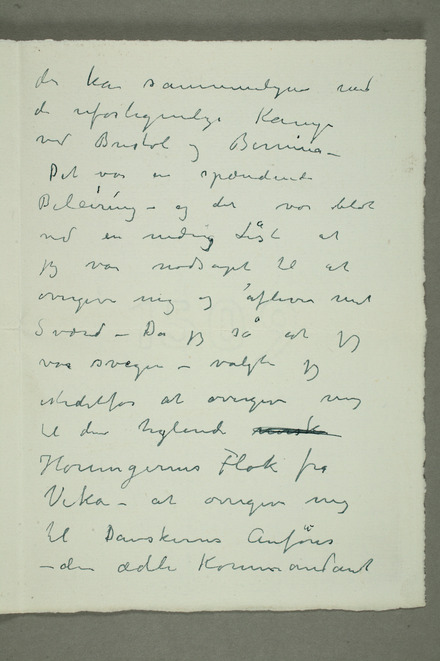 der kan sammenlignes med
de uforlignelige Kampe
ved Bristol og Bernina –
Det var en spændende
Beleiring – og det var blot
ved en nedrig List at
jeg var nødsaget til at
overgive mig og aflevere mit
Sværd – Da jeg så at jeg
var sveget – valgte jeg
istedetfor at overgive mig
til den hylende
Horungernes Flok fra
Vika – at overgive mig
til Danskernes Anfører
– den ædle Kommandant